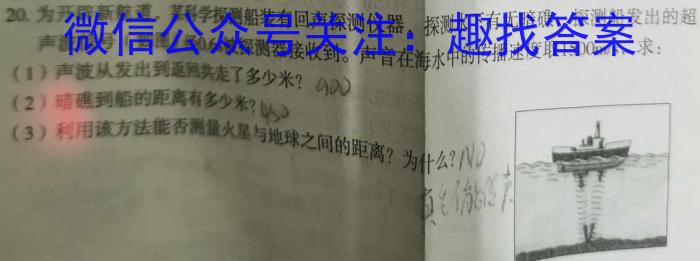 20. 为开辟新航道，某科学探测船装有回声探测仪器，探测 有无暗礁 探测船发出的超
微信公众号关注：趣找答案
声波 探测器接收到。声音在海水中的传播速度取1500m/s，求：
（1）声波从发出到返回共走了多少米？ 900
（2）暗礁到船的距离有多少米？ 450
（3）利用该方法能否测量火星与地球之间的距离？为什么？ NO
真空不能